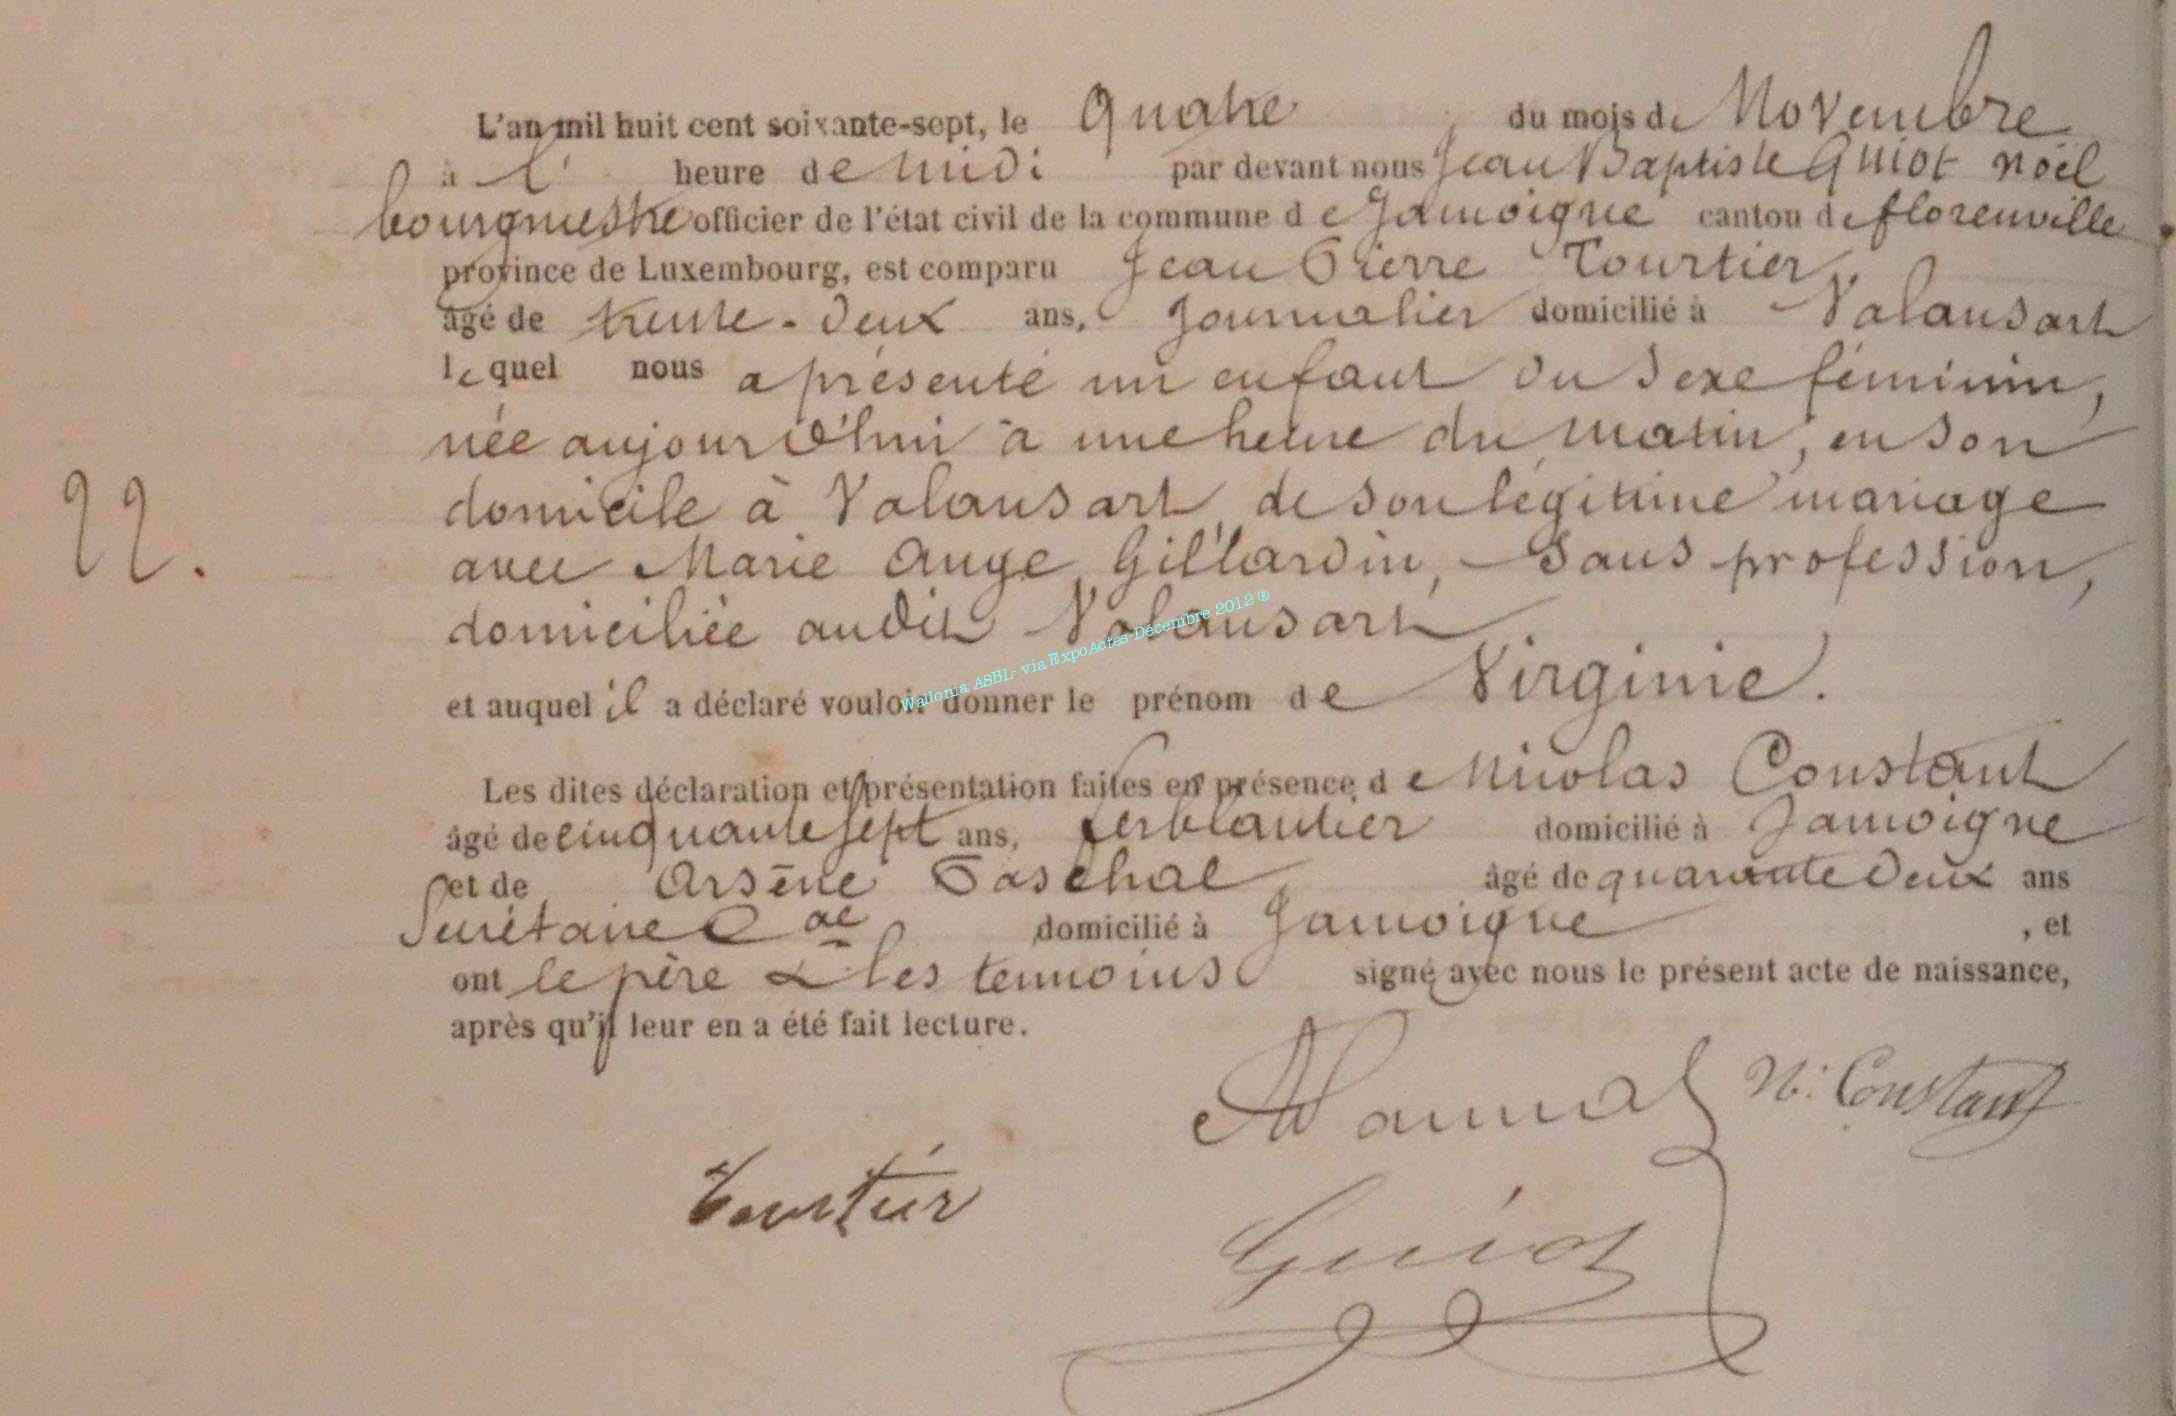 L'an mil huit cent soixante-sept, le quatre du mois de Novembre
à l' heure de midi par devant nous Jean Baptiste Guiot Noël
bourgmestre officier de l'état civil de la commune de Jamoigne canton de florenville
province de Luxembourg, est comparu Jean Pierre Tourtier,
âgé de trente-deux ans, Journalier domicilié à Valansart
lequel nous a présenté un enfant du sexe féminin,
née aujourd'hui à une heure du matin, en son
domicile à Valansart, de son légitime mariage
22.
avec Marie Ange Gillardin, sans profession,
domiciliée audit Valansart
et auquel il a déclaré vouloir donner le prénom de Virginie.
Wallonia ASBL- via ExpoActes-Décembre 2012 ®
Les dites déclaration et présentation faites en présence de Nicolas Constant
âgé de cinquante sept ans, ferblantier domicilié à Jamoigne
et de Arsène Paschal âgé de quarante deux ans
Secrétaire Cal domicilié à Jamoigne, et
ont le père & les temoins signé avec nous le présent acte de naissance,
après qu'il leur en a été fait lecture.
N. Constant
Tourtier
Guiot